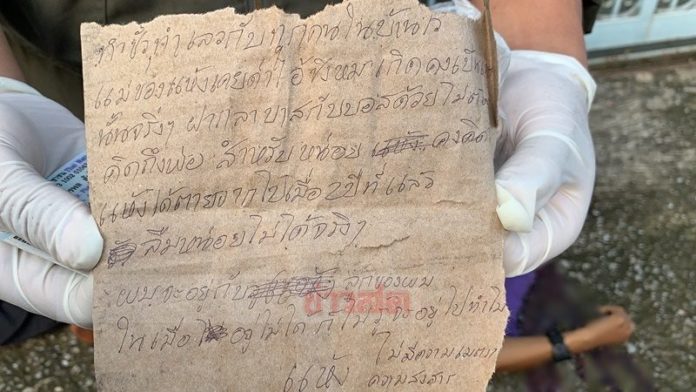 เราชั่วทำเลวกับทุกคนในบ้านไว้
แม่ของแห้งเคยด่าไอ้ชิงหมาเกิดคงเป็น
นั้นจริงๆ ฝากลาบาสกับบอสด้วยไม่ต้อง
คิดถึงพ่อ สำหรับหน่อย คงคิด
แห้งได้ตายจากไปเมื่อ 2 ปีที่แล้ว
ลืมหน่อยไม่ได้จริงๆ
ผมจะอยู่กับ ลูกของผม
ในเมื่อ อยู่ไม่ได้ก็ไม่รู้จะอยู่ไปทำไม
แห้ง ไม่มีความเมตตา
ความสงสาร
ข่าวสด